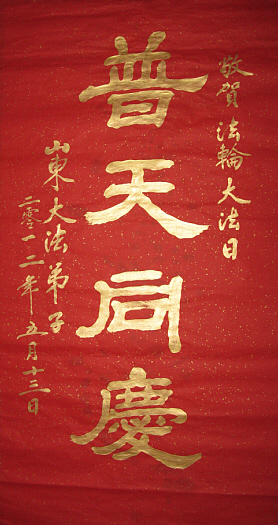 敬賀法輪大法日
普天同慶
山東大法弟子
二零一二年五月十三日